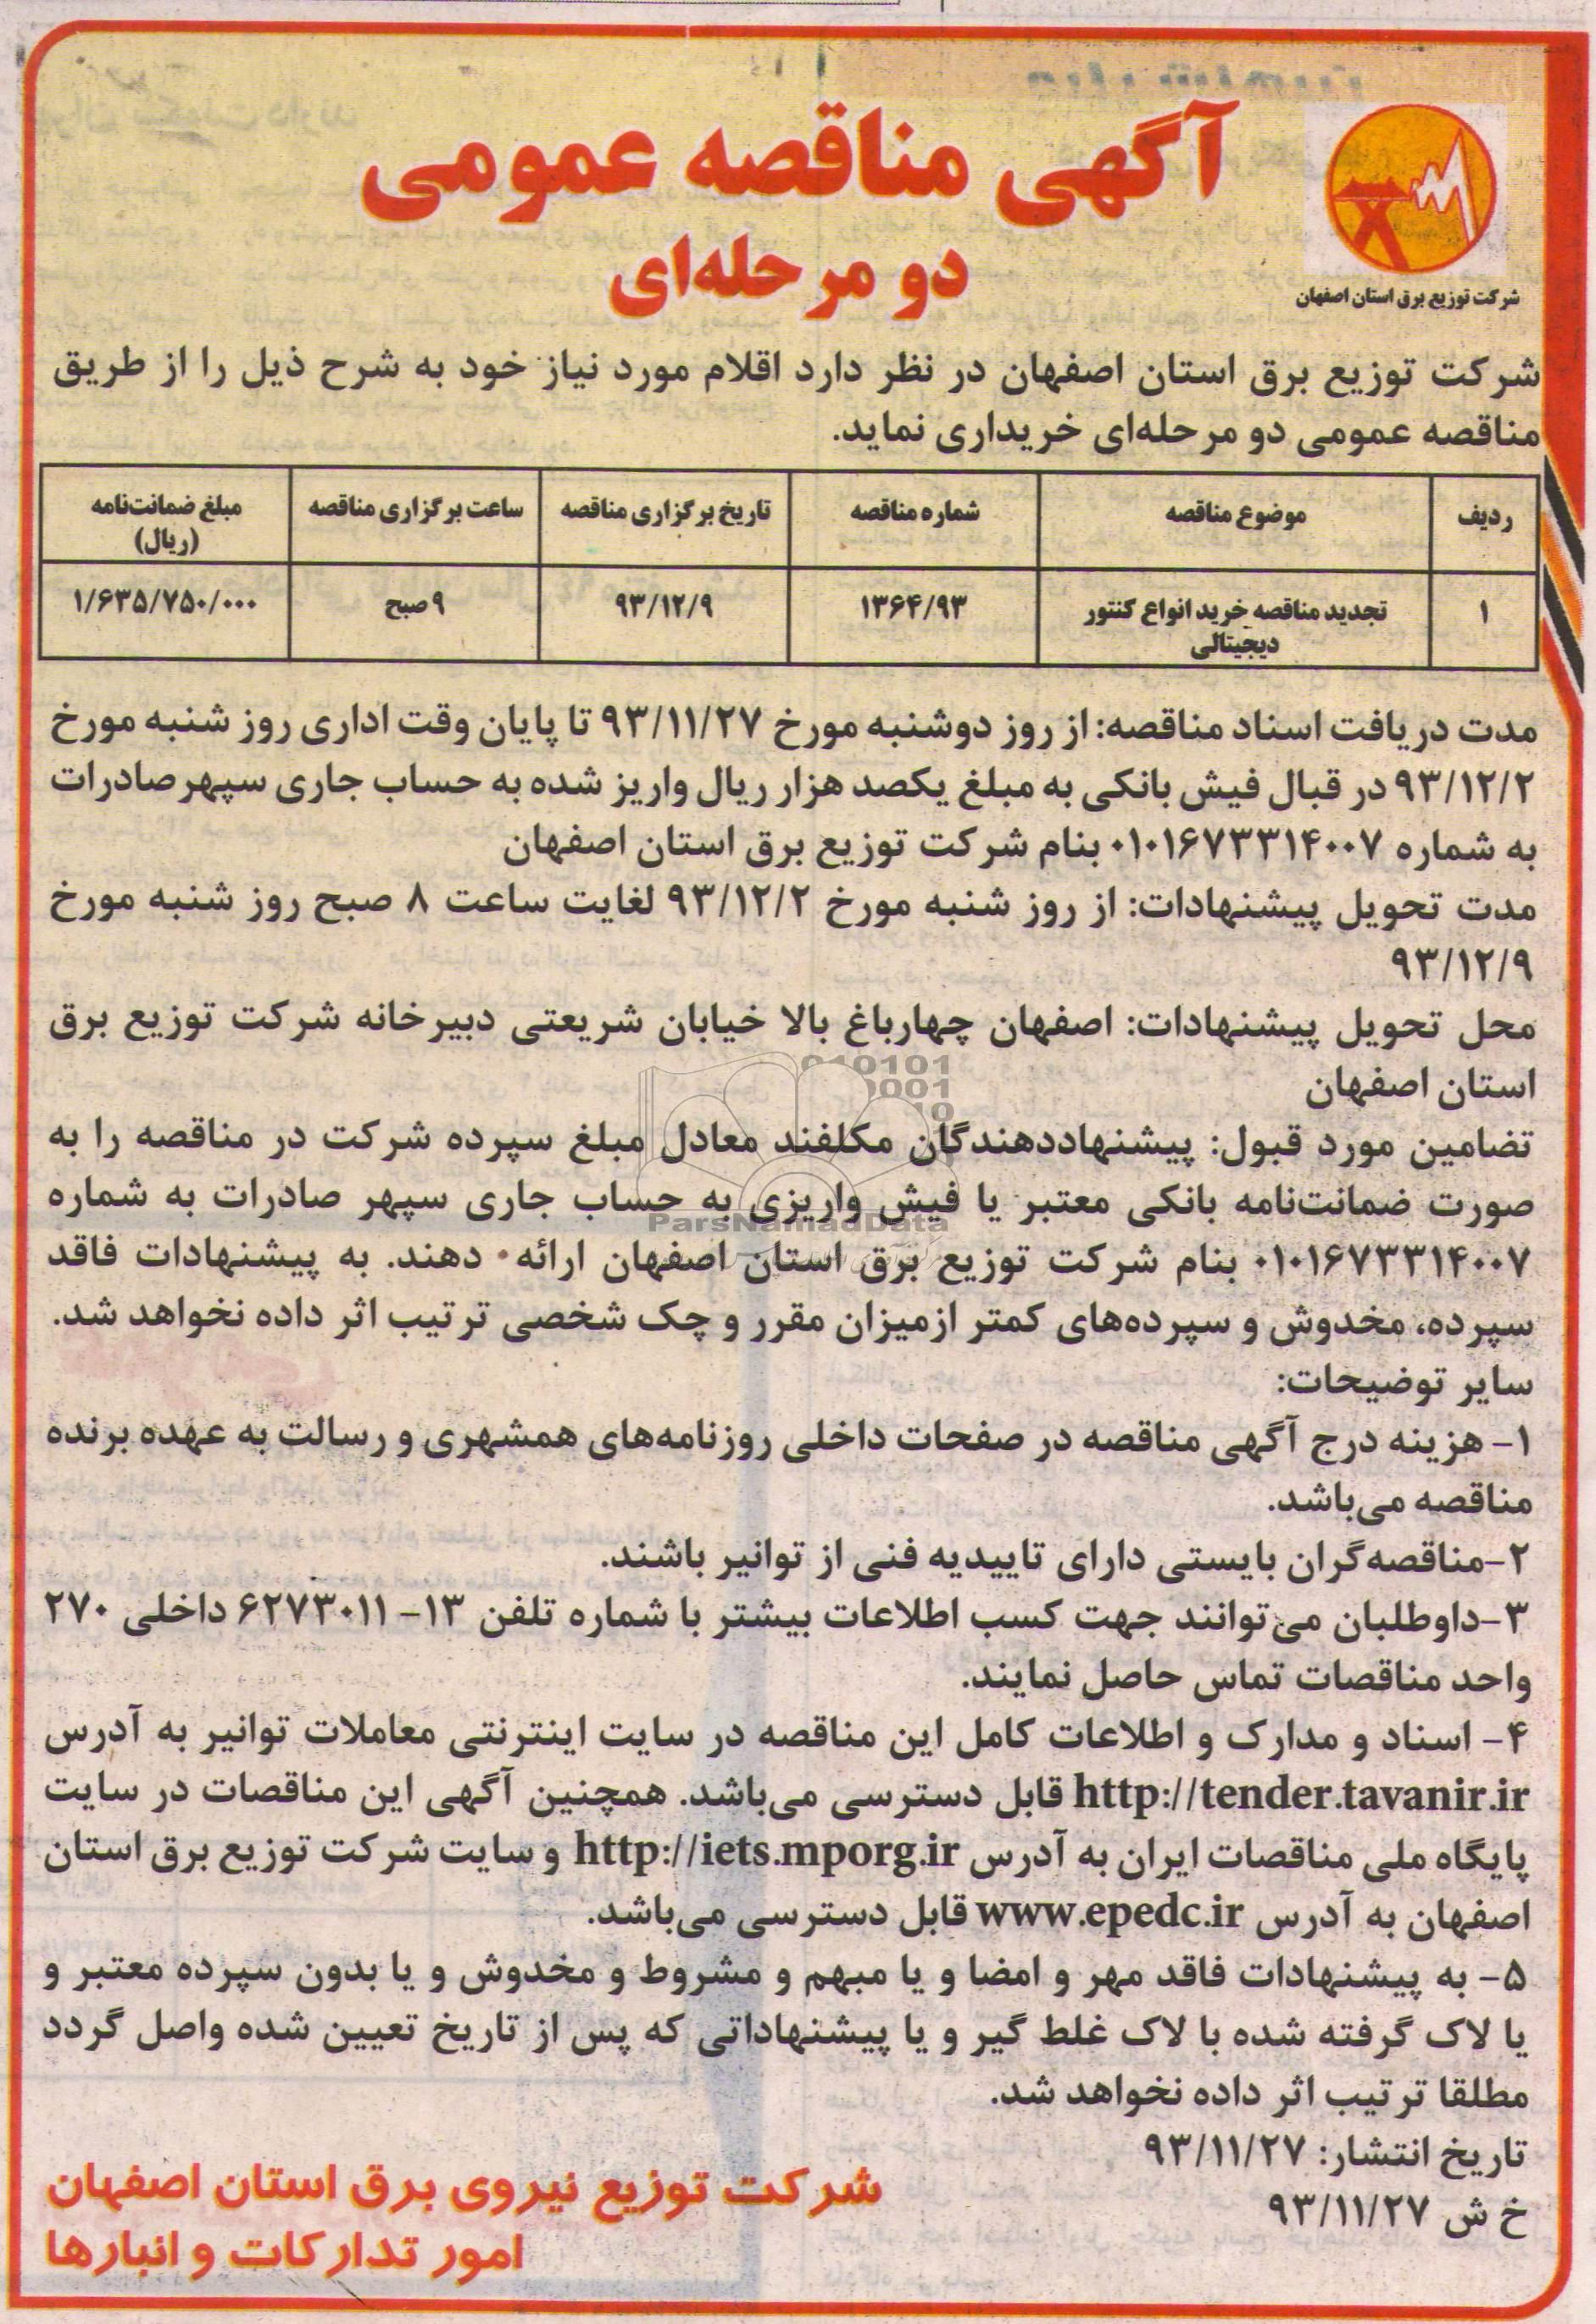 آگهی مناقصه عمومی
دو مرحله‌ای
شرکت توزیع برق استان اصفهان
شرکت توزیع برق استان اصفهان در نظر دارد اقلام مورد نیاز خود به شرح ذیل را از طریق
مناقصه عمومی دو مرحله‌ای خریداری نماید.
ردیف موضوع مناقصه شماره مناقصه تاریخ برگزاری مناقصه ساعت برگزاری مناقصه مبلغ ضمانت‌نامه
(ریال)
۱ تجدید مناقصه خرید انواع کنتور ۱۳۶۴/۹۳ ۹۳/۱۲/۹ ۹ صبح ۱/۶۳۵/۷۵۰/۰۰۰
دیجیتالی
مدت دریافت اسناد مناقصه: از روز دوشنبه مورخ ۹۳/۱۱/۲۷ تا پایان وقت اداری روز شنبه مورخ
۹۳/۱۲/۲ در قبال فیش بانکی به مبلغ یکصد هزار ریال واریز شده به حساب جاری سپهرصادرات
به شماره ۰۱۰۱۶۷۳۳۱۴۰۰۷ بنام شرکت توزیع برق استان اصفهان
مدت تحویل پیشنهادات: از روز شنبه مورخ ۹۳/۱۲/۲ لغایت ساعت ۸ صبح روز شنبه مورخ
۹۳/۱۲/۹
محل تحویل پیشنهادات: اصفهان چهارباغ بالا خیابان شریعتی دبیرخانه شرکت توزیع برق
استان اصفهان
تضامین مورد قبول: پیشنهاددهندگان مکلفند معادل مبلغ سپرده شرکت در مناقصه را به
صورت ضمانت‌نامه بانکی معتبر یا فیش واریزی به حساب جاری سپهر صادرات به شماره
ParsNamadData
۰۱۰۱۶۷۳۳۱۴۰۰۷ بنام شرکت توزیع برق استان اصفهان ارائه دهند. به پیشنهادات فاقد
سپرده، مخدوش و سپرده‌های کمتر ازمیزان مقرر و چک شخصی ترتیب اثر داده نخواهد شد.
سایر توضیحات:
۱- هزینه درج آگهی مناقصه در صفحات داخلی روزنامه‌های همشهری و رسالت به عهده برنده
مناقصه می‌باشد.
۲-مناقصه‌گران بایستی دارای تاییدیه فنی از توانیر باشند.
۳-داوطلبان می‌توانند جهت کسب اطلاعات بیشتر با شماره تلفن ۱۳- ۶۲۷۳۰۱۱ داخلی ۲۷۰
واحد مناقصات تماس حاصل نمایند.
۴- اسناد و مدارک و اطلاعات کامل این مناقصه در سایت اینترنتی معاملات توانیر به آدرس
http://tender.tavanir.ir قابل دسترسی می‌باشد. همچنین آگهی این مناقصات در سایت
پایگاه ملی مناقصات ایران به آدرس http://iets.mporg.ir و سایت شرکت توزیع برق استان
اصفهان به آدرس www.epedc.ir قابل دسترسی می‌باشد.
۵- به پیشنهادات فاقد مهر و امضا و یا مبهم و مشروط و مخدوش و یا بدون سپرده معتبر و
یا لاک گرفته شده با لاک غلط گیر و یا پیشنهاداتی که پس از تاریخ تعیین شده واصل گردد
مطلقا ترتیب اثر داده نخواهد شد.
تاریخ انتشار: ۹۳/۱۱/۲۷
خ ش ۹۳/۱۱/۲۷
شرکت توزیع نیروی برق استان اصفهان
امور تدارکات و انبارها